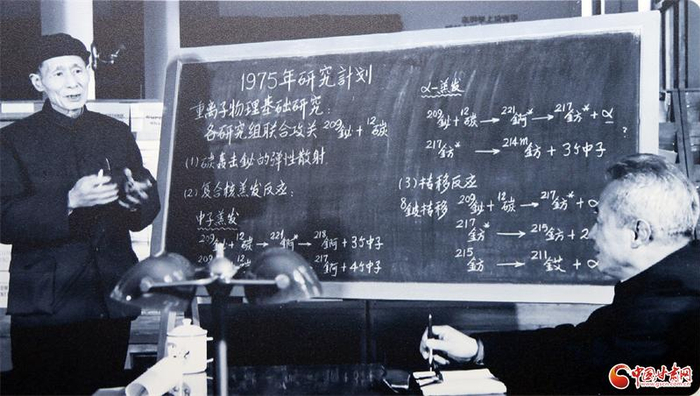 1975年研究計划
重离子物理基础研究:
各研究组联合攻关 ²⁰⁹鉍+¹²碳
(1) 碳轰击鉍的弹性散射
(2) 复合核蒸发反应:
中子蒸发
²⁰⁹鉍+¹²碳→²²¹錒*→²¹⁸錒+3个中子
²⁰⁹鉍 ¹²碳 ²¹⁷錒+4个中子
α-蒸发
²⁰⁹鉍+¹²碳→²²¹錒*→²¹⁷鈁*+α
?
²¹⁷鈁*→²¹⁴ᵐ鈁+3个中子
(3) 转移反应
⁸鈹转移 ²⁰⁹鉍+¹²碳→²¹⁷鈁*+α
²¹⁷鈁*→²¹⁵鈁+2
²¹⁵鈁→²¹¹銰+α
中国甘肃网